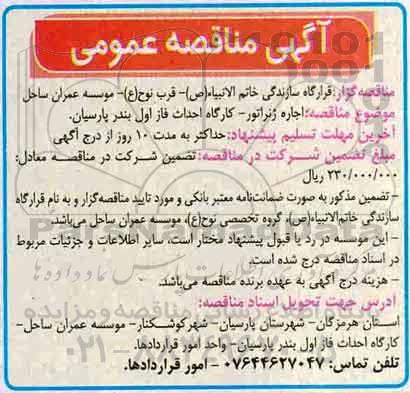 آگهی مناقصه عمومی
مناقصه‌گزار: قرارگاه سازندگی خاتم الانبیاء(ص)- قرب نوح(ع)- موسسه عمران ساحل
موضوع مناقصه: اجاره ژنراتور- کارگاه احداث فاز اول بندر پارسیان.
آخرین مهلت تسلیم پیشنهاد: حداکثر به مدت ۱۰ روز از درج آگهی
مبلغ تضمین شرکت در مناقصه: تضمین شرکت در مناقصه معادل:
۲۳۰/۰۰۰/۰۰۰ ریال
- تضمین مذکور به صورت ضمانت‌نامه معتبر بانکی و مورد تایید مناقصه‌گزار و به نام قرارگاه
سازندگی خاتم‌الانبیاء(ص)، گروه تخصصی نوح(ع)، موسسه عمران ساحل می‌باشد.
- این موسسه در رد یا قبول پیشنهاد مختار است، سایر اطلاعات و جزئیات مربوط
در اسناد مناقصه درج شده است.
- هزینه درج آگهی به عهده برنده مناقصه می‌باشد.
آدرس جهت تحویل اسناد مناقصه:
استان هرمزگان- شهرستان پارسیان- شهرکوشکنار- موسسه عمران ساحل-
کارگاه احداث فاز اول بندر پارسیان- واحد امور قراردادها.
تلفن تماس: ۰۷۶۴۴۶۲۷۰۴۷ - امور قراردادها.